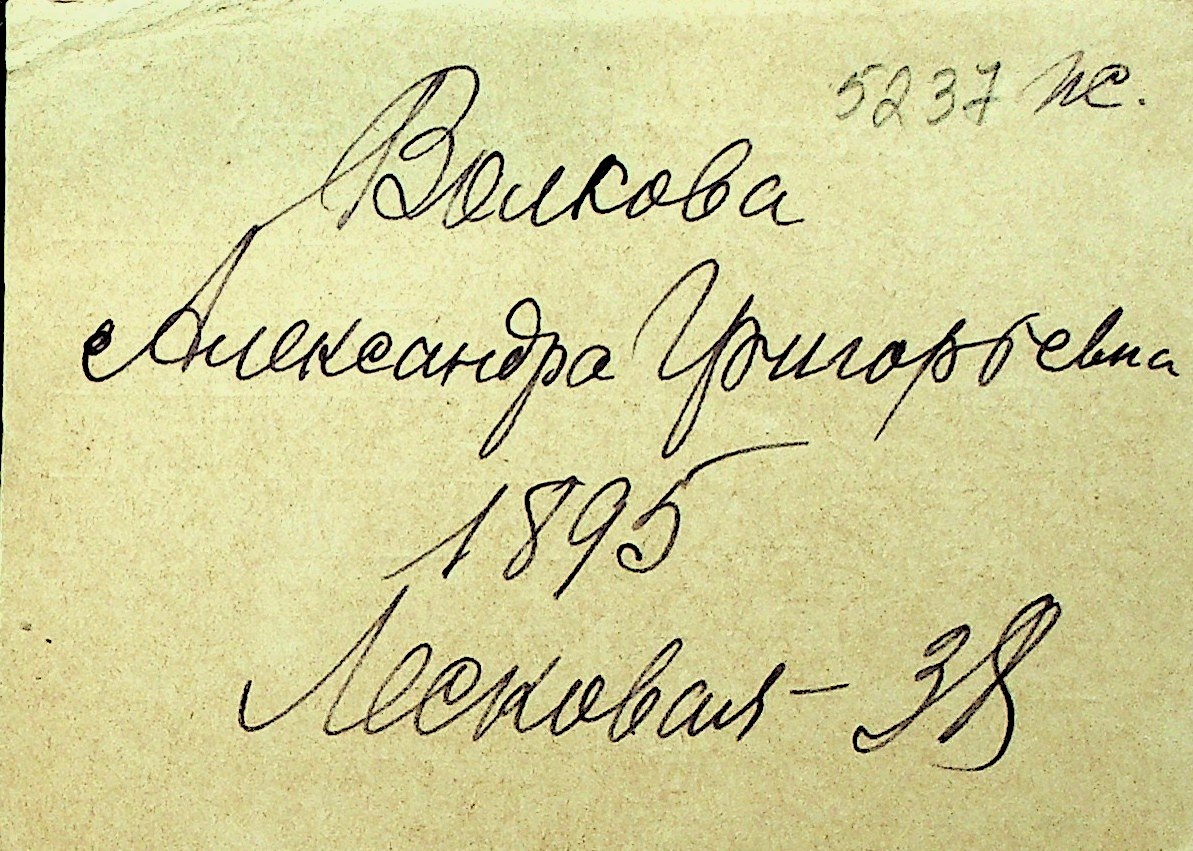 5237 пс.
Волкова
Александра Григорьевна
1895
Лесковая - 38